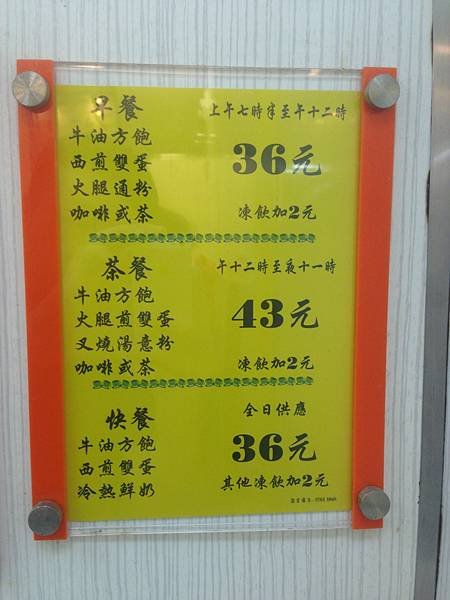 早餐
上午七時半至午十二時
牛油方飽
西煎雙蛋
火腿通粉
咖啡或茶
36元
凍飲加2元
茶餐
午十二時至夜十一時
牛油方飽
火腿煎雙蛋
叉燒湯意粉
咖啡或茶
43元
凍飲加2元
快餐
全日供應
牛油方飽
西煎雙蛋
冷熱鮮奶
36元
其他凍飲加2元